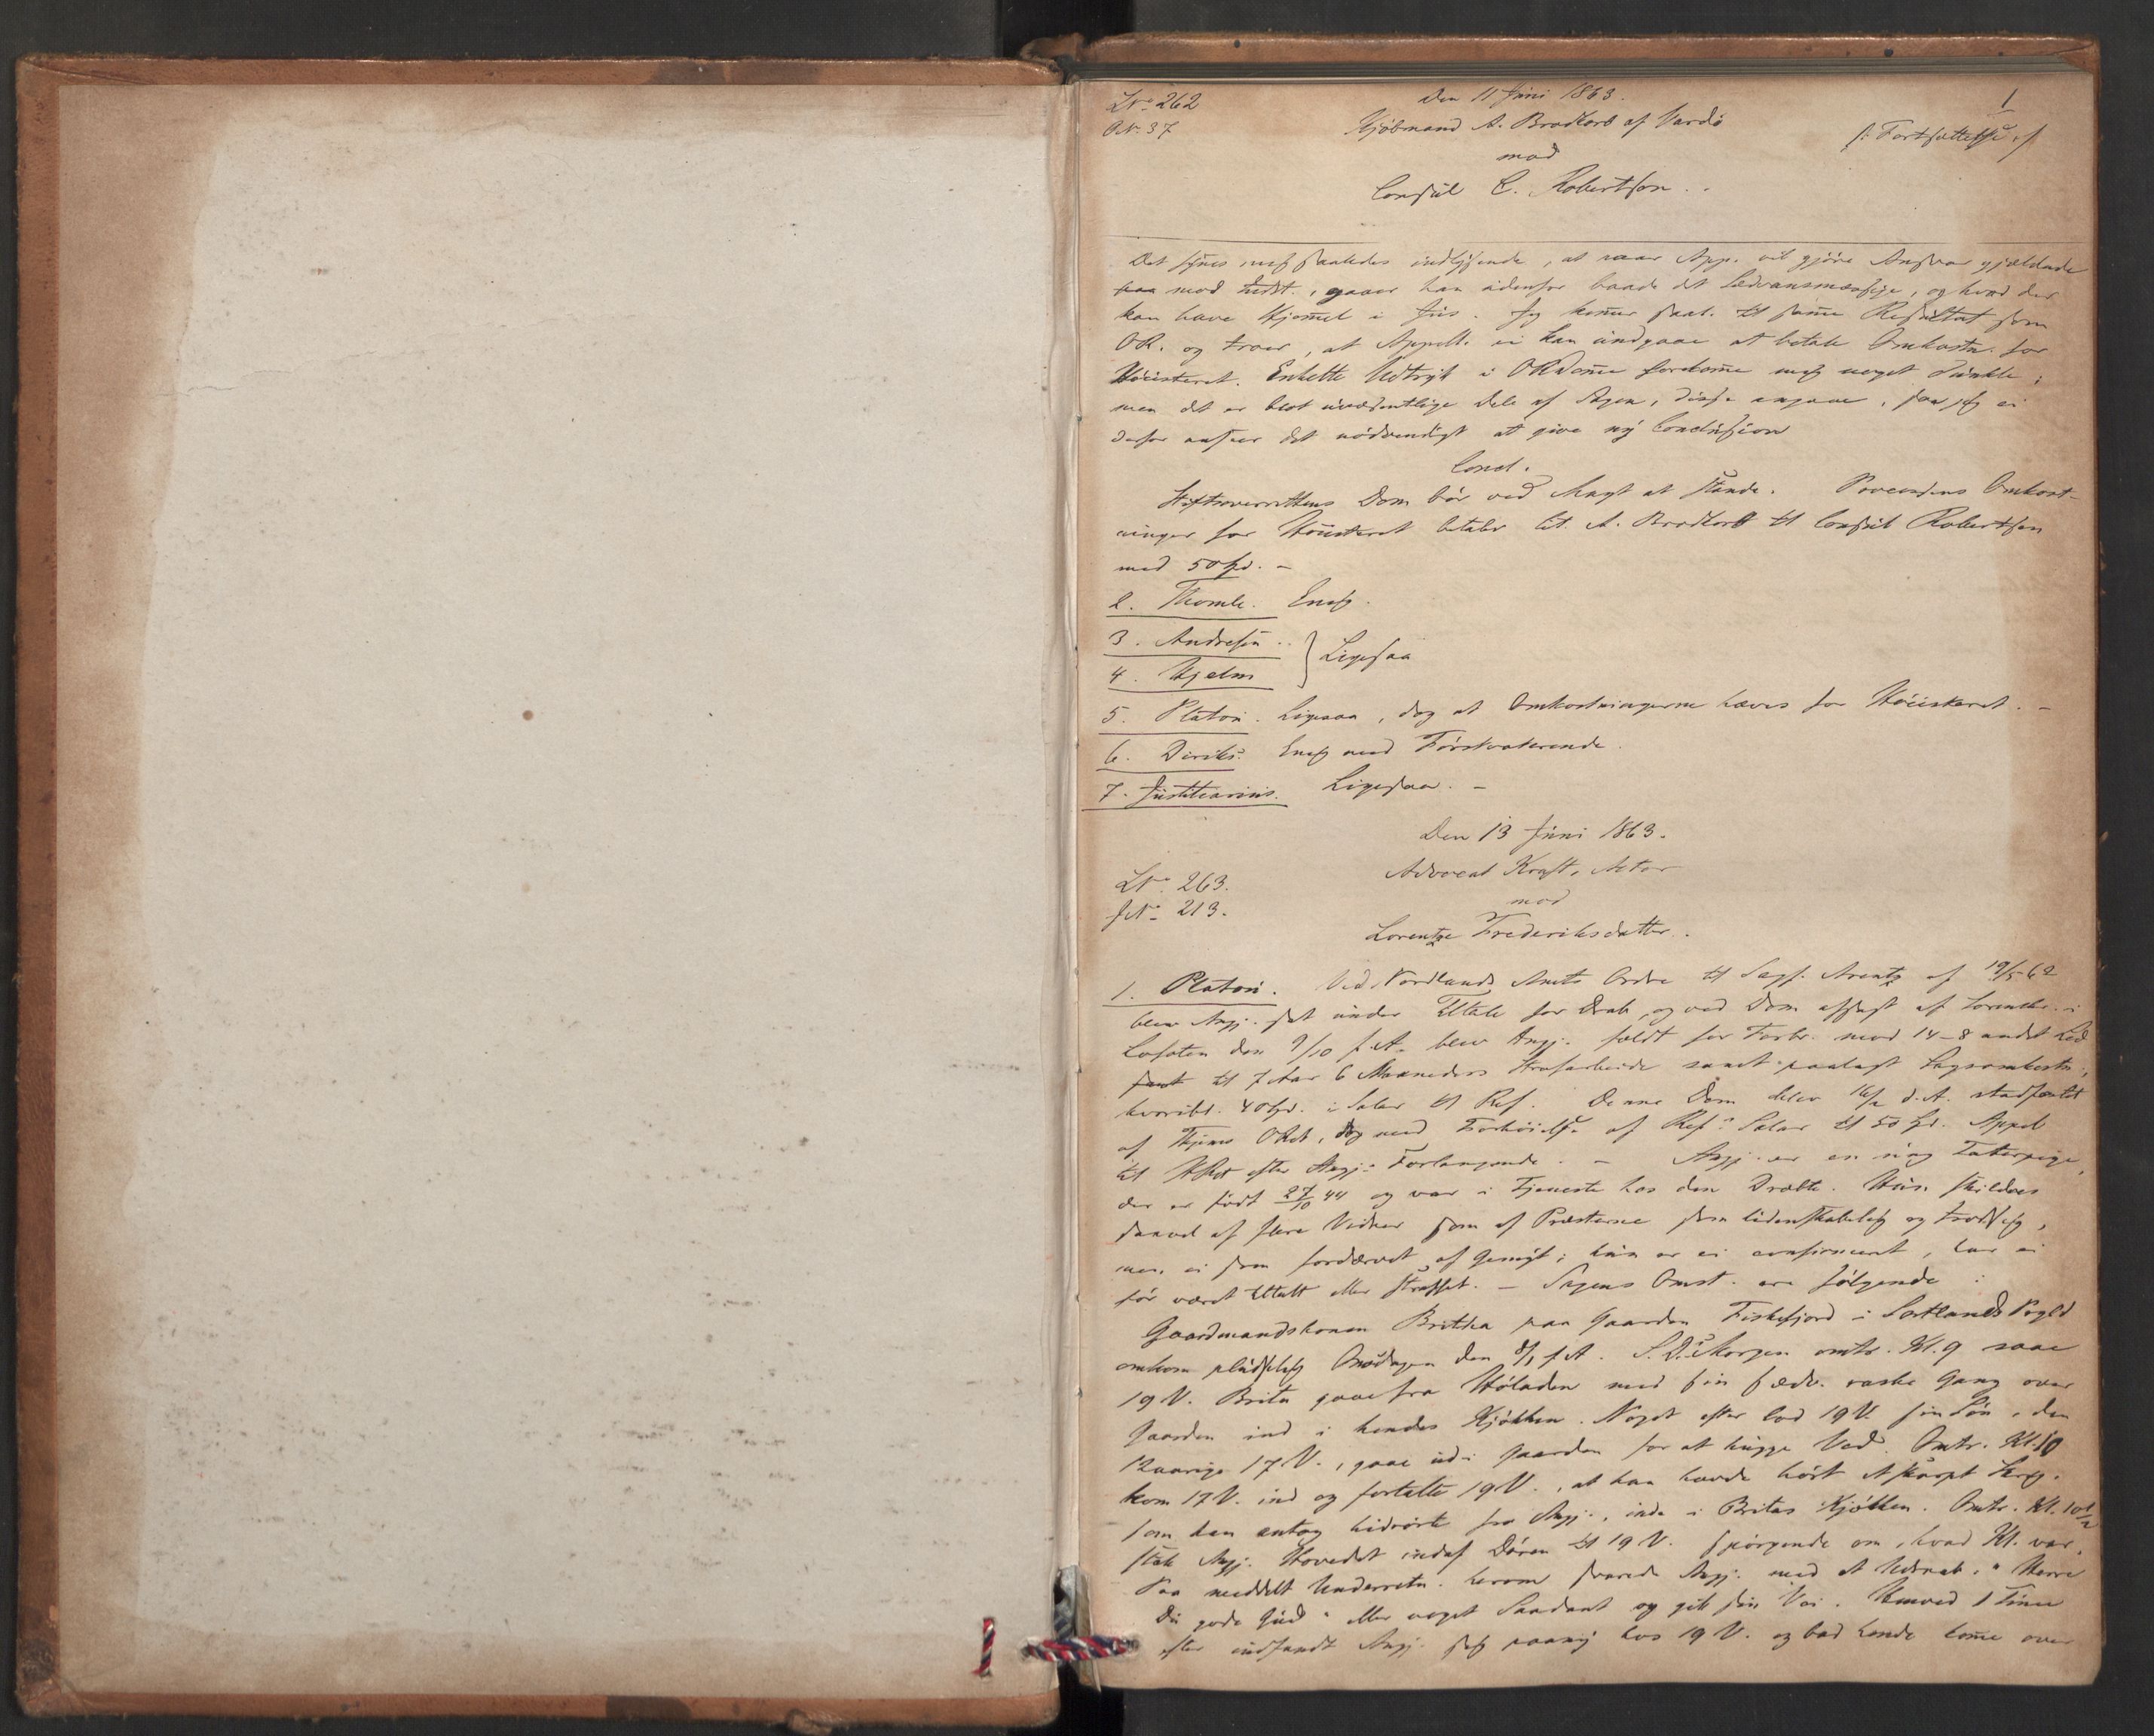 1
LN° 262
ON. 37
Den 11 Juni 1863.
Kjöbmand A. Brodtkorb af Vardö
(: Fortsættelse :)
mod
Consul C. Robertson.
Det synes mig saaledes indlysende, at naar App. vil gjöre Ansvar gjældende
mod Indst., gaaer han udenfor baade det Sedvansmæssige, og hvad der
kan have Hjemmel i Jus. Jeg kommer saal. til samme Resultat som
OR. og troer, at Appell. ei kan undgaae at betale Omkostn. for
Höiesteret. Enkelte Udtryk i ORdomme forekomme mig noget dunkle;
men det er blot uvæsentlige Dele af Sagen, disse angaae, saa jeg ei
derfor anseer det nödvendigt at give ny Conclusion
Concl.
Stiftsoverrettens Dom bör ved Magt at stande. Processens Omkost-
ninger for Höiesteret betaler Cit. A. Brodtkorb til Consul Robertson
med 50 Spd. –
2. Thomle. Enig.
3. Andresen.
4. Hjelm } Ligesaa
5. Platou. Ligesaa, dog at Omkostningerne hæves for Höiesteret. –
6. Diriks. Enig med Förstvoterende.
7. Justitiarius. Ligesaa. –
Den 13 Juni 1863.
LN° 263.
JN° 213.
Advocat Kraft, Actor
mod
Lorentze Frederiksdatter.
1. Platou. Ved Nordlands Amts Ordre til Sagf. Arentz af 19/5 62
blev Angj. sat under Tiltale for Drab, og ved Dom afsagt af Sorenskr. i
Lofoten den 9/10 f. A. blev Angj. fældt for Forbr. mod 14-8 andet Led
til 7 Aar 6 Maaneders Strafarbeide samt paalagt Sagsomkostn.,
hvoribl. 40 Spd. i Salær til Ref. Denne Dom blev 16/2 d. A. stadfæstet
af Thjems ORet, dog med Forhöielse af Refs Salær til 50 Spd. Appel
til HRet efter Angjs Forlangende. – Angj. er en ung Taterpige,
der er födt 27/10 44 og var i Tjeneste hos den Dræbte. Hun skildres
saavel af flere Vidner som af Præsterne som lidenskabelig og trodsig,
men ei som fordærvet af Gemyt; hun er ei confirmeret, har ei
för været tiltalt eller straffet. – Sagens Omst. ere fölgende:
Gaardmandskonen Britha paa Gaarden Fiskefjord i Sortlands Pgld
omkom pludselig Onsdagen den 8/1 f. A. S. D.s Morgen omtr. Kl. 9 saae
19 V. Brita gaae fra Höladen med sin sædv. raske Gang over
Gaarden ind i hendes Kjökken. Noget efter lod 19 V. sin Sön, den
12aarige 17 V., gaae ud i Gaarden for at hugge Ved. Omtr. Kl. 10
kom 17 V. ind og fortalte 19 V., at han havde hört et skarpt Skrig,
som han antog hidrörte fra Angj., inde i Britas Kjökken. Omtr. Kl. 10 1/2
stak Angj. Hovedet indaf Dören til 19 V. spörgende om, hvad Kl. var.
Paa meddelt Underretn. herom svarede Angj. med et Udraab: "Herre
Du gode Gud" eller noget Saadant og gik sin Vei. Henved 1 Time
efter indfandt Angj. sig paany hos 19 V. og bad hende komme over